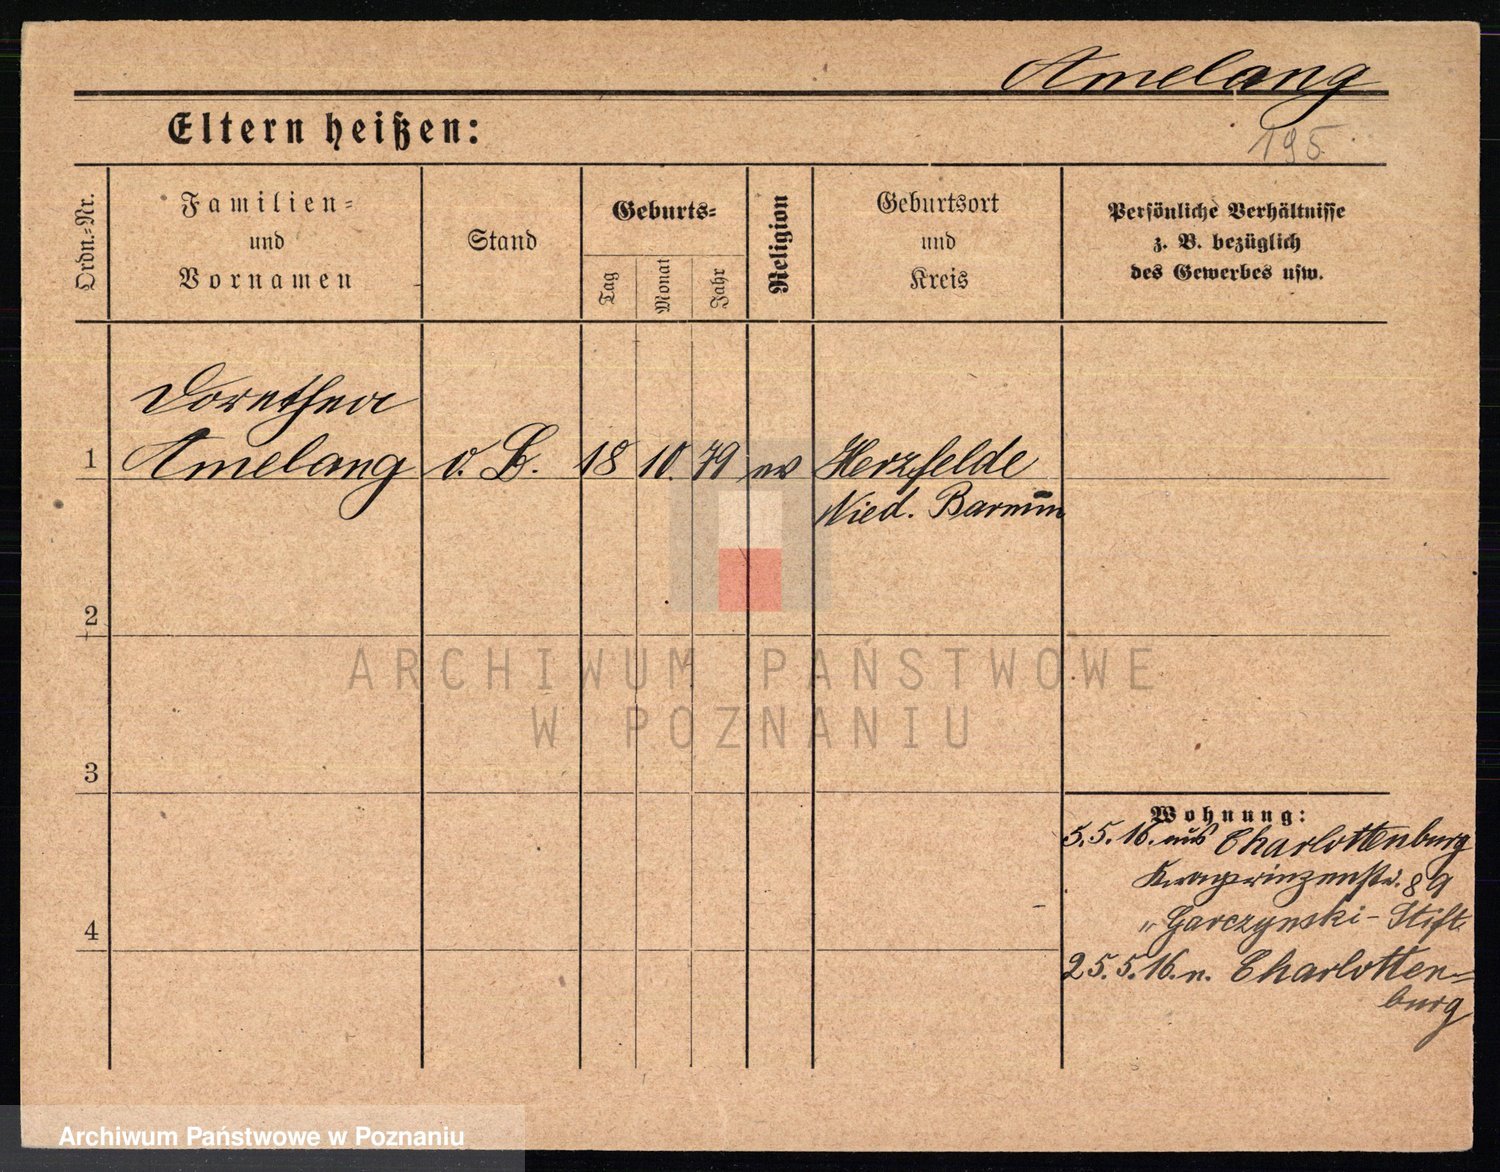 Amelang
Eltern heißen:
195
Ordn.-Nr.
Familien-
und
Vornamen
Stand
Geburts-
Tag
Monat
Jahr
Religion
Geburtsort
und
Kreis
Persönliche Verhältnisse
z. B. bezüglich
des Gewerbes usw.
Dorethea
1 Amelang o. B. 18 10. 79 ev Herzfelde
Nied. Barnim
2
ARCHIWUM PAŃSTWOWE
W POZNANIU
3
Wohnung:
5.5.16. aus Charlottenburg
Kronprinzenstr. 89
" Garczynski-Stift.
4
25.5.16. n. Charlotten-
burg
Archiwum Państwowe w Poznaniu